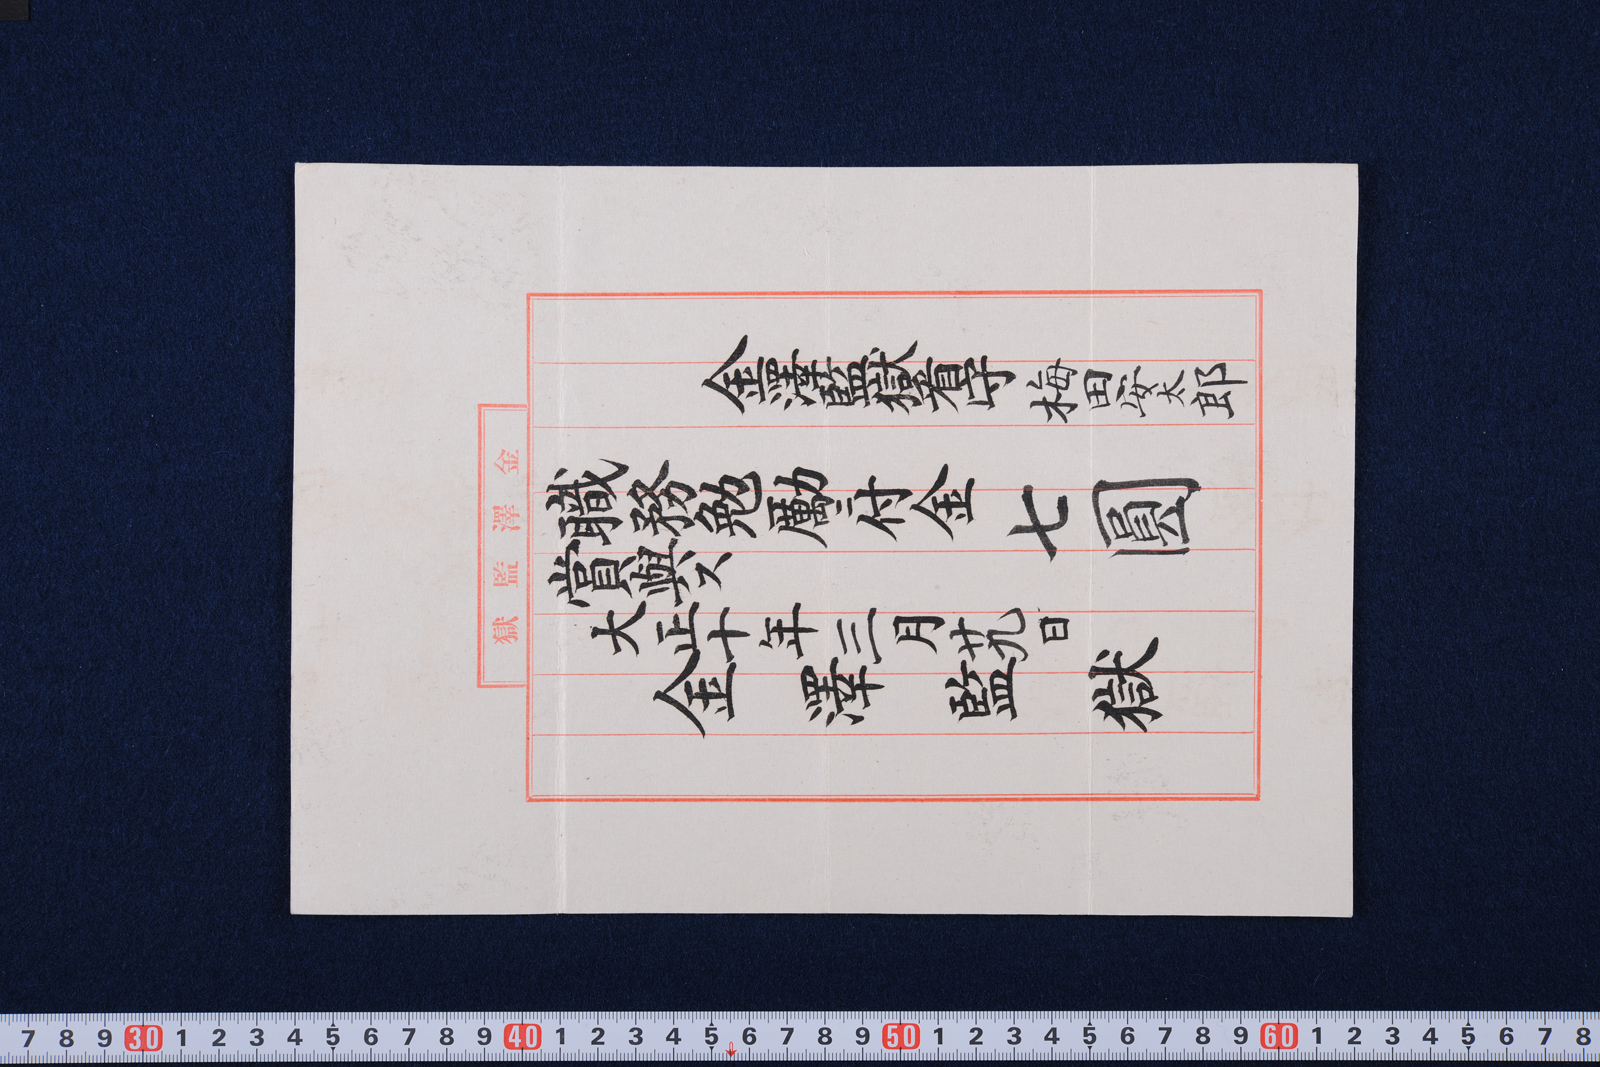 金澤監獄看守 梅田安太郎
職務勉勵ニ付金七圓
賞與ス
大正十年三月廿九日
金澤監獄
金澤監獄
7 8 9 30 1 2 3 4 5 6 7 8 9 40 1 2 3 4 5 6 7 8 9 50 1 2 3 4 5 6 7 8 9 60 1 2 3 4 5 6 7 8